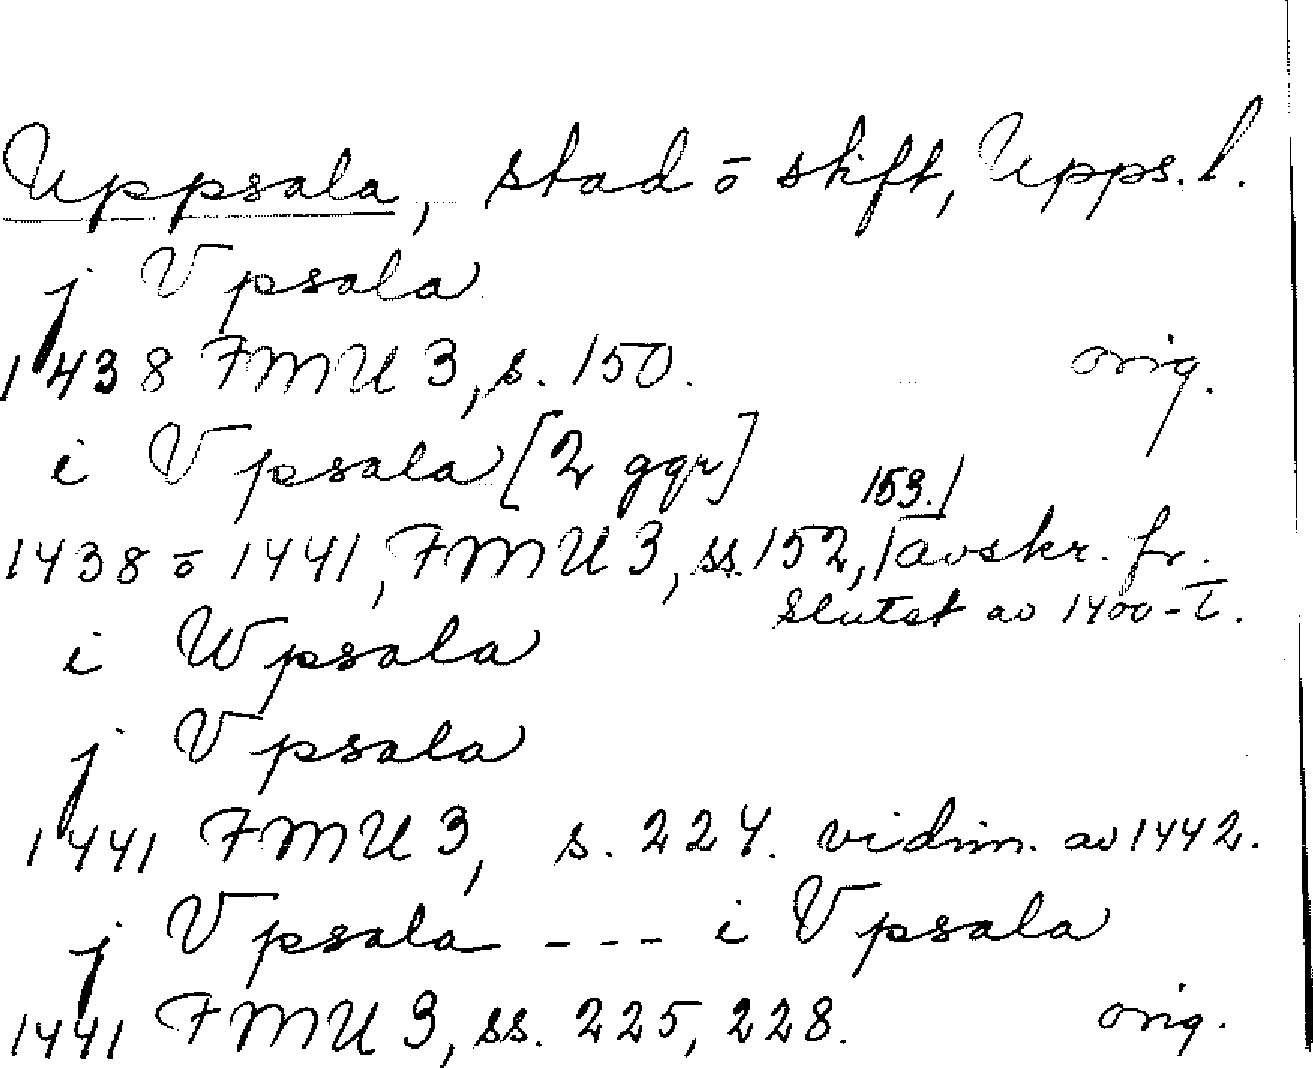 Uppsala, stad o stift, Upps. l.
j Vpsala
1438 FMU 3, s. 150. orig.
i Vpsala [2 ggr]
1438 o 1441, FMU 3, ss. 152, 153. avskr. fr.
slutet av 1400-t.
i Wpsala
j Vpsala
1441 FMU 3, s. 224. vidim. av 1442.
j Vpsala - - - i Vpsala
1441 FMU 3, ss. 225, 228. orig.